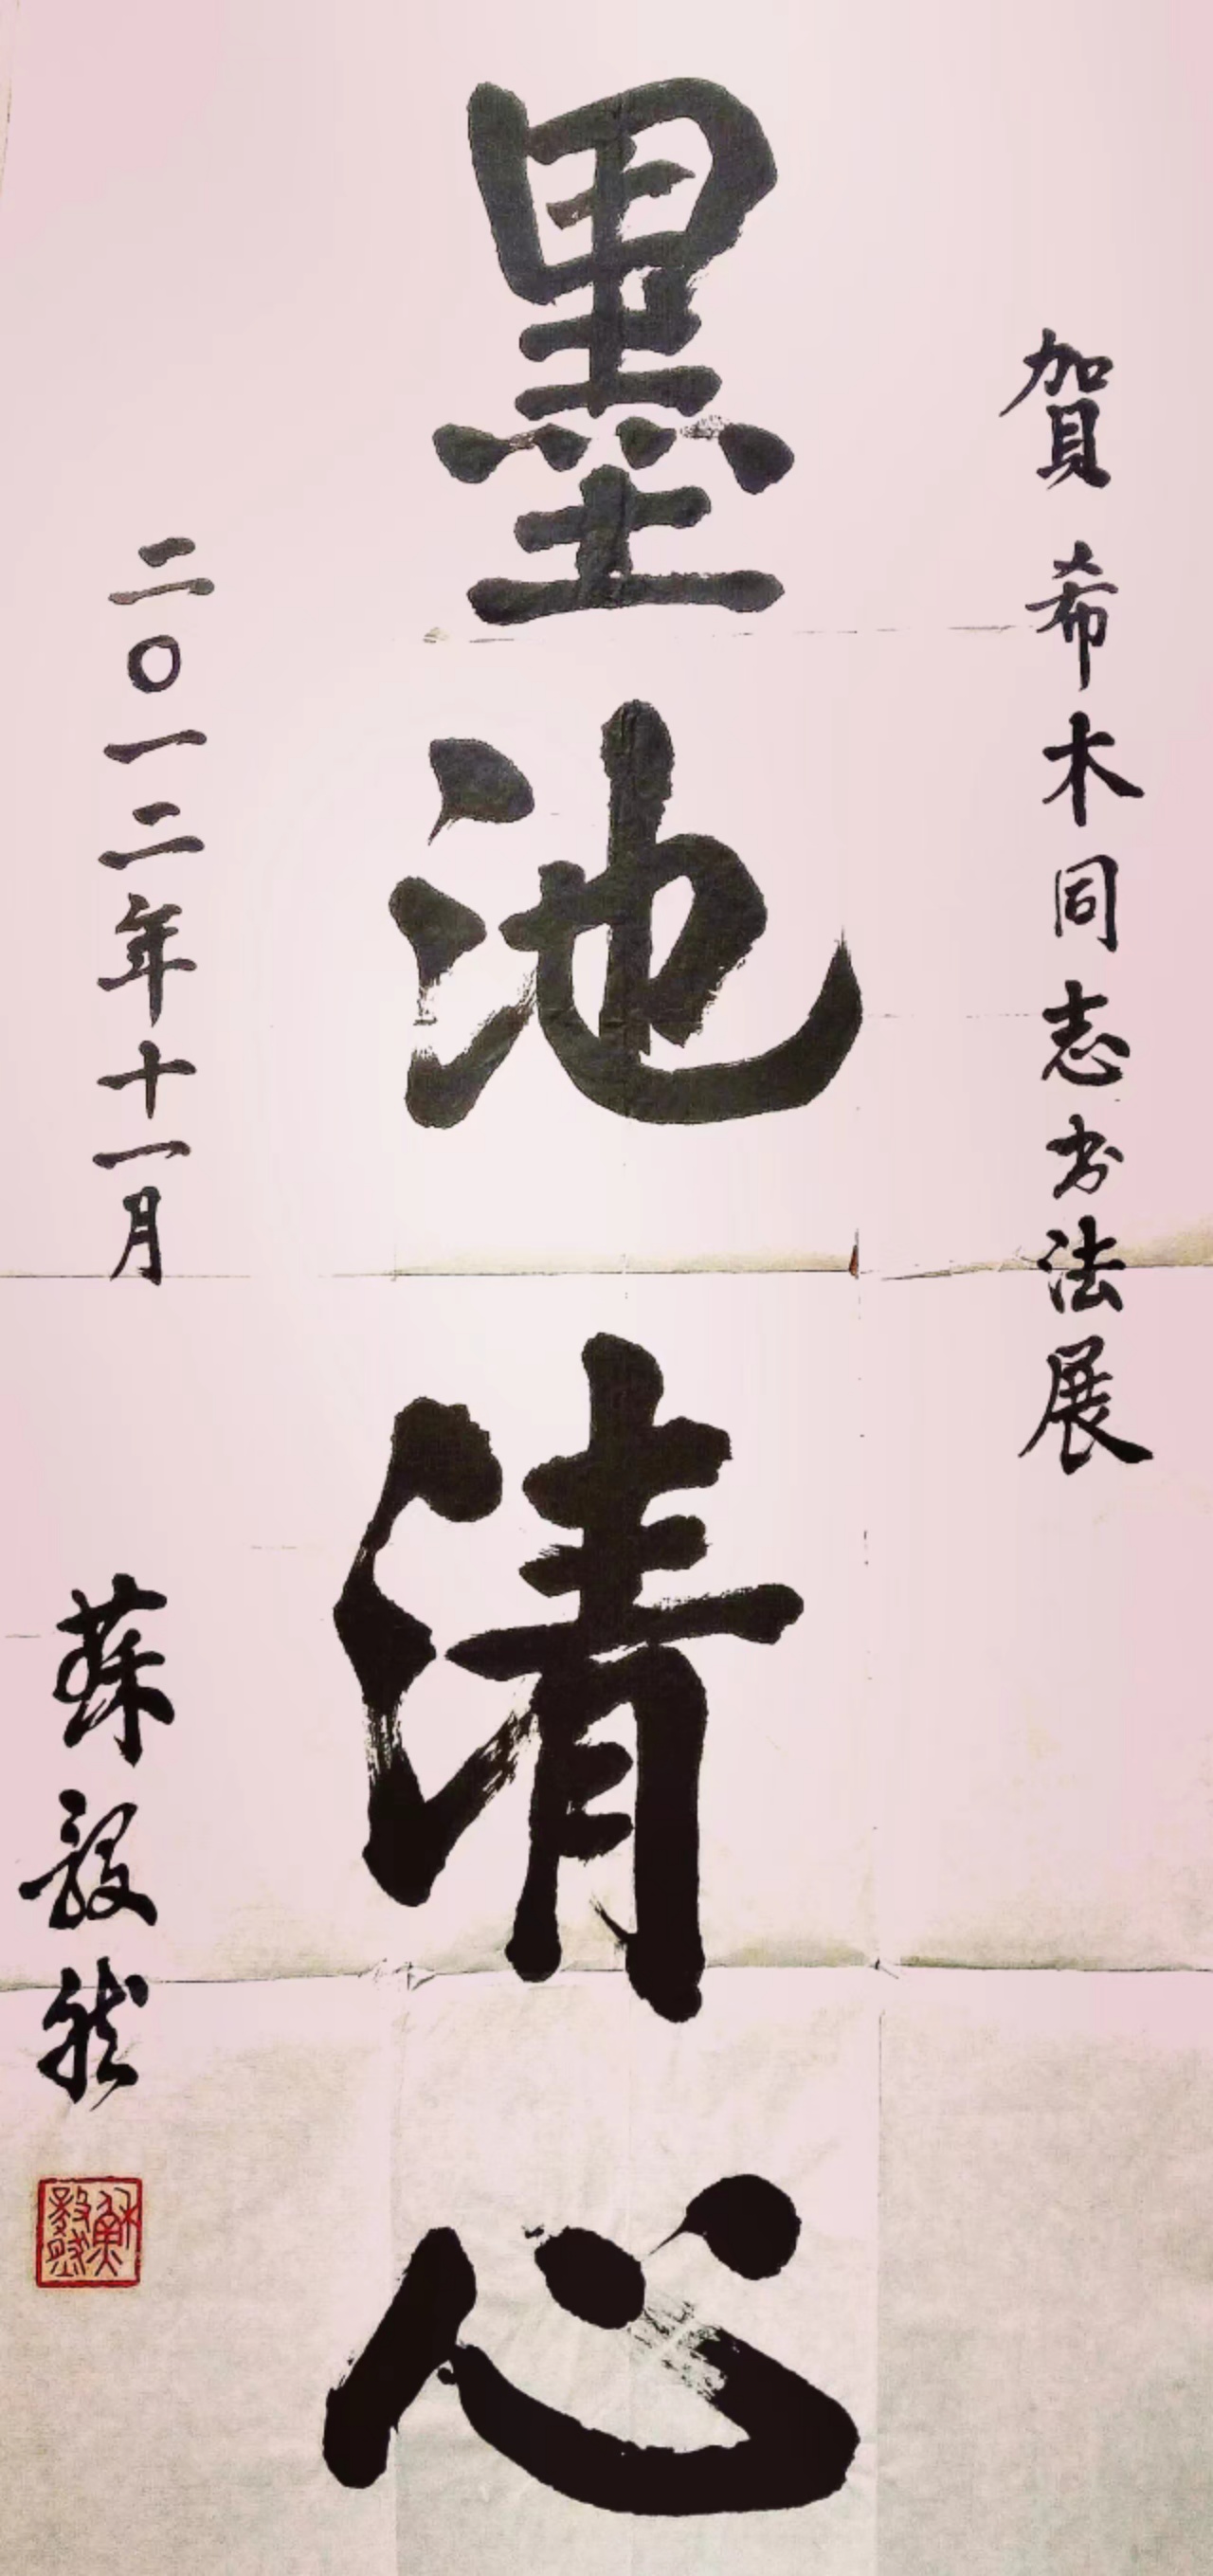 賀希木同志书法展
墨池清心
二〇一二年十一月
蘇毅然